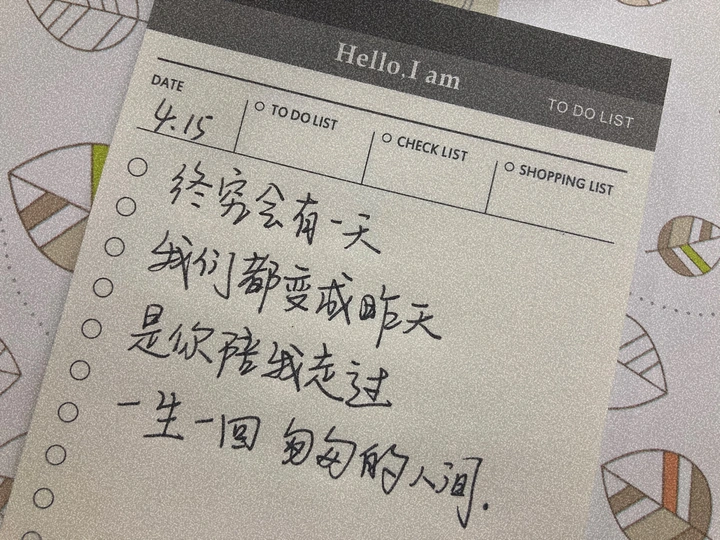 Hello,I am
TO DO LIST
DATE
4.15
TO DO LIST
CHECK LIST
SHOPPING LIST
终穷会有一天
我们都变成昨天
是你陪我走过
一生一回匆匆的人间.